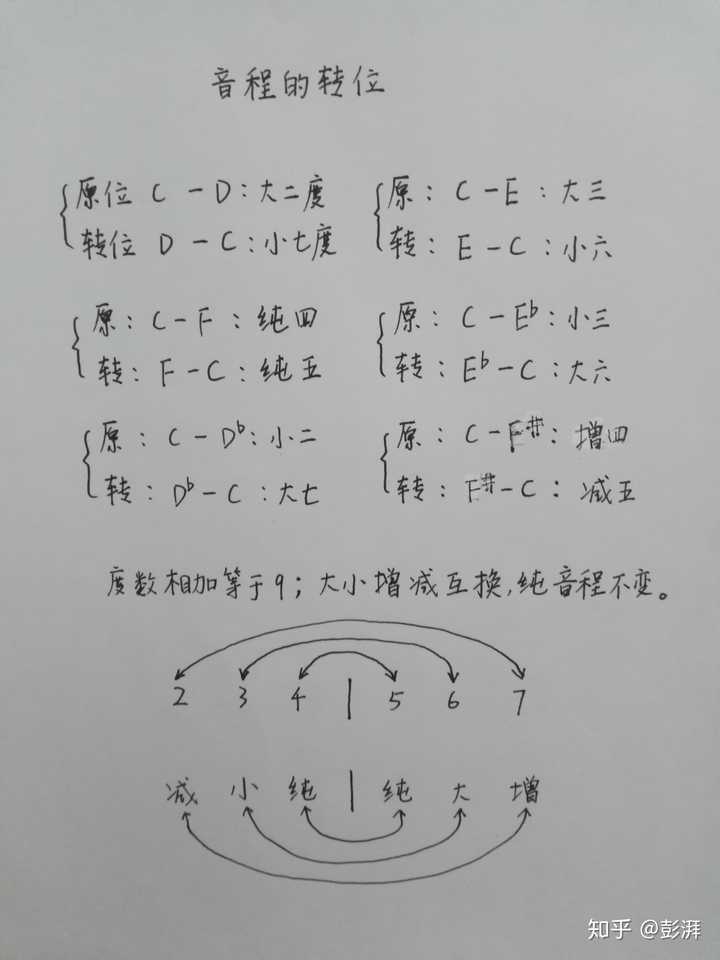 音程的转位
原位 C - D：大二度
转位 D - C：小七度
原：C - E：大三
转：E - C：小六
原：C - F：纯四
转：F - C：纯五
原：C - E♭：小三
转：E♭ - C：大六
原：C - D♭：小二
转：D♭ - C：大七
原：C - F#：增四
转：F# - C：减五
度数相加等于9；大小增减互换，纯音程不变。
2 3 4 | 5 6 7
减 小 纯 | 纯 大 增
知乎 @彭湃